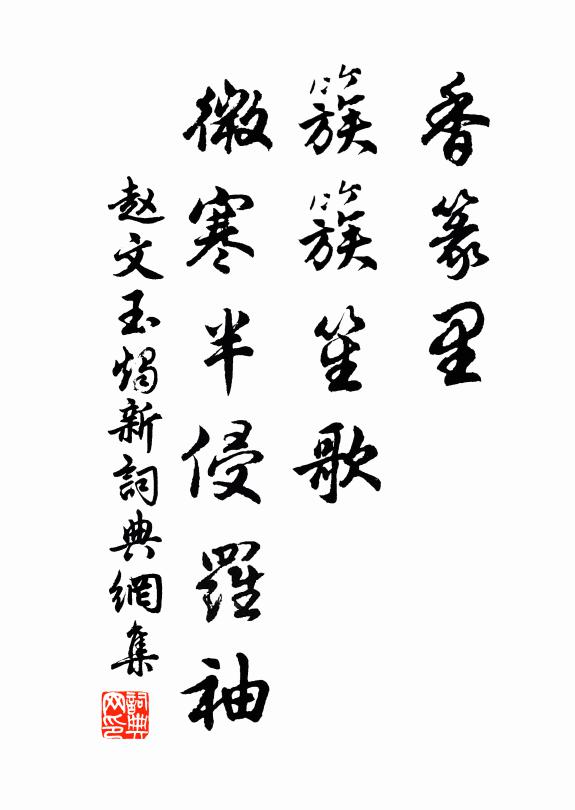 香篆里
簇簇笙歌
微寒半侵羅袖
赵文玉燭新詞典網集
詞典网印